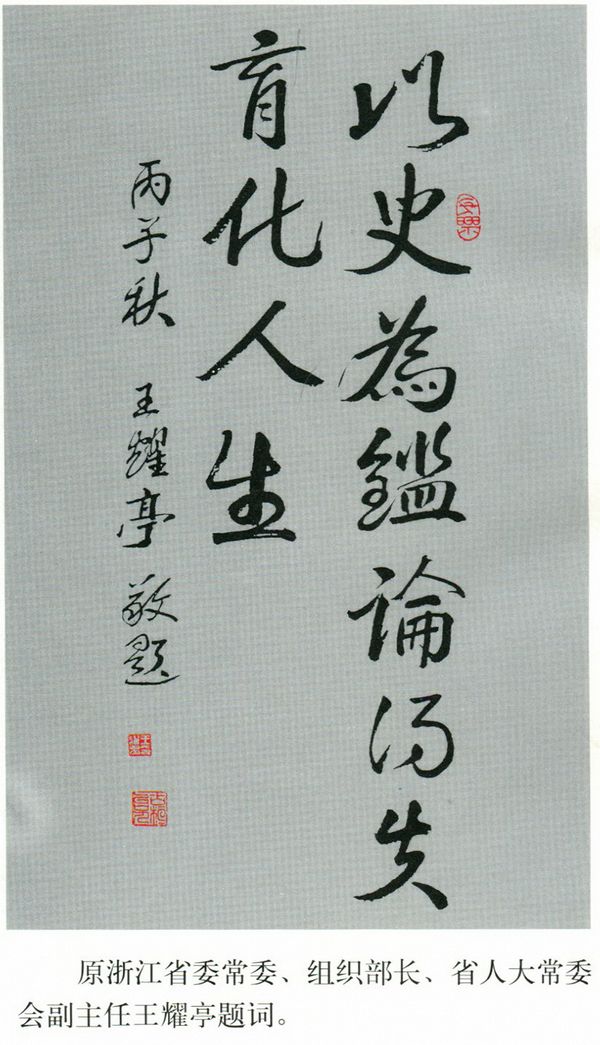 以史為鑑論得失
育化人生
丙子秋 王耀亭 敬题
原浙江省委常委、组织部长、省人大常委
会副主任王耀亭题词。